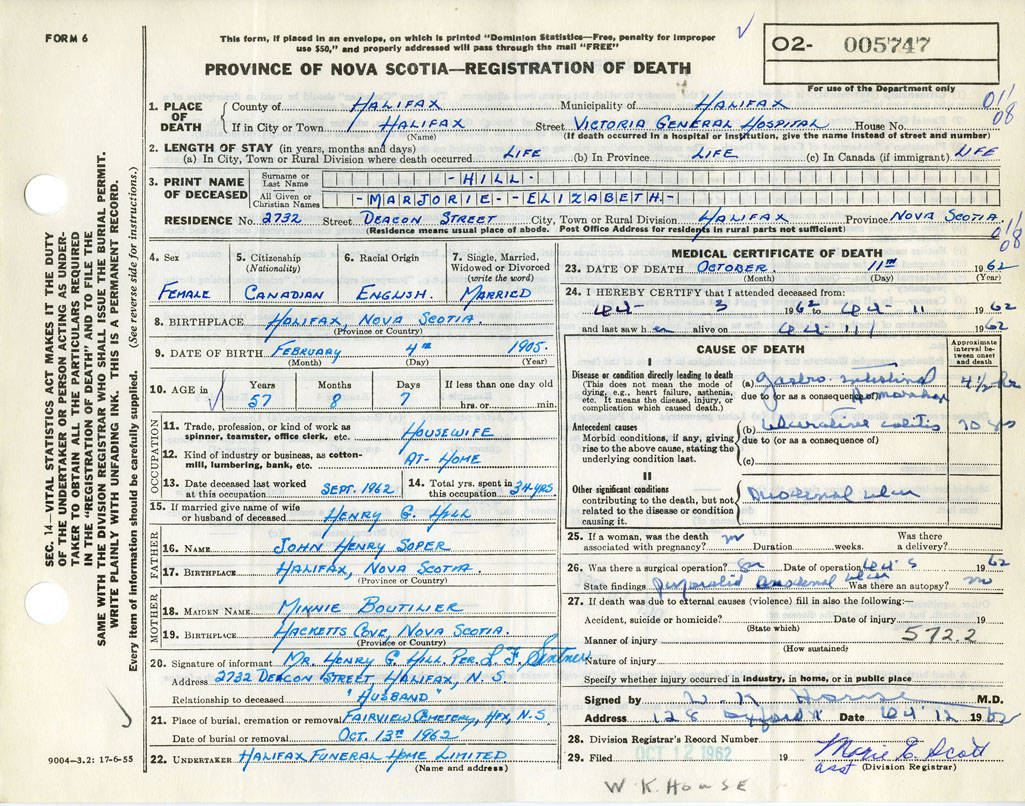 FORM 6
This form, if placed in an envelope, on which is printed "Dominion Statistics—Free, penalty for improper
use $50," and properly addressed will pass through the mail "FREE"
PROVINCE OF NOVA SCOTIA—REGISTRATION OF DEATH
O2- 005747
For use of the Department only
011
08
1. PLACE OF DEATH
County of HALIFAX Municipality of HALIFAX
If in City or Town HALIFAX Street VICTORIA GENERAL HOSPITAL House No.
(Name) (If death occurred in a hospital or institution, give the name instead of street and number)
2. LENGTH OF STAY (in years, months and days)
(a) In City, Town or Rural Division where death occurred LIFE (b) In Province LIFE (c) In Canada (if immigrant) LIFE
3. PRINT NAME OF DECEASED
Surname or Last Name -HILL-
All Given or Christian Names -MARJORIE--ELIZABETH-
RESIDENCE No. 2732 Street DEACON STREET City, Town or Rural Division HALIFAX Province NOVA SCOTIA
(Residence means usual place of abode. Post Office Address for residents in rural parts not sufficient)
011
08
4. Sex FEMALE
5. Citizenship (Nationality) CANADIAN
6. Racial Origin ENGLISH
7. Single, Married, Widowed or Divorced (write the word) MARRIED
8. BIRTHPLACE HALIFAX, NOVA SCOTIA.
(Province or Country)
9. DATE OF BIRTH FEBRUARY 4TH 1905
(Month) (Day) (Year)
10. AGE in Years 57 Months 8 Days 7 If less than one day old hrs. or min.
OCCUPATION
11. Trade, profession, or kind of work as spinner, teamster, office clerk, etc. HOUSEWIFE
12. Kind of industry or business, as cotton-mill, lumbering, bank, etc. AT-HOME
13. Date deceased last worked at this occupation SEPT. 1962
14. Total yrs. spent in this occupation 34 YRS
15. If married give name of wife or husband of deceased HENRY G. HILL
FATHER
16. NAME JOHN HENRY SOPER
17. BIRTHPLACE HALIFAX, NOVA SCOTIA.
(Province or Country)
MOTHER
18. MAIDEN NAME MINNIE BOUTILIER
19. BIRTHPLACE HACKETTS COVE, NOVA SCOTIA.
(Province or Country)
20. Signature of informant MR. HENRY G. HILL. PER. L. F.
Address 2732 DEACON STREET HALIFAX, N.S.
Relationship to deceased "HUSBAND"
21. Place of burial, cremation or removal FAIRVIEW CEMETERY, HFX, N.S
Date of burial or removal OCT. 13TH 1962
22. UNDERTAKER HALIFAX FUNERAL HOME LIMITED
(Name and address)
MEDICAL CERTIFICATE OF DEATH
23. DATE OF DEATH OCTOBER 11TH 1962
(Month) (Day) (Year)
24. I HEREBY CERTIFY that I attended deceased from:
Oct- 3 1962 to Oct- 11 1962
and last saw her alive on Oct-11 1962
CAUSE OF DEATH
Approximate interval between onset and death
I
Disease or condition directly leading to death
(This does not mean the mode of dying, e.g., heart failure, asthenia, etc. It means the disease, injury, or complication which caused death.)
(a) Gastro-intestinal 4 1/2 hr
due to (or as a consequence of) hemorrhage
Antecedent causes
Morbid conditions, if any, giving rise to the above cause, stating the underlying condition last.
(b) Ulcerative colitis 20 yrs
due to (or as a consequence of)
(c)
II
Other significant conditions
contributing to the death, but not related to the disease or condition causing it.
Duodenal ulcer
25. If a woman, was the death associated with pregnancy? no Duration weeks. Was there a delivery?
26. Was there a surgical operation? Date of operation Oct 5 1962
State findings perforated duodenal ulcer Was there an autopsy? no
27. If death was due to external causes (violence) fill in also the following:—
Accident, suicide or homicide? Date of injury 19
(State which)
572.2
Manner of injury
(How sustained)
Nature of injury
Specify whether injury occurred in industry, in home, or in public place
Signed by W. K. House M.D.
Address 128 Oxford St Date Oct 12 1962
28. Division Registrar's Record Number
29. Filed OCT 12 1962 19 Marie E. Scott
asst (Division Registrar)
W.K. HOUSE
SEC. 14—VITAL STATISTICS ACT MAKES IT THE DUTY
OF THE UNDERTAKER OR PERSON ACTING AS UNDER-
TAKER TO OBTAIN ALL THE PARTICULARS REQUIRED
IN THE "REGISTRATION OF DEATH" AND TO FILE THE
SAME WITH THE DIVISION REGISTRAR WHO SHALL ISSUE THE BURIAL PERMIT.
WRITE PLAINLY WITH UNFADING INK. THIS IS A PERMANENT RECORD.
Every item of information should be carefully supplied. (See reverse side for instructions.)
9004—3.2: 17-6-55